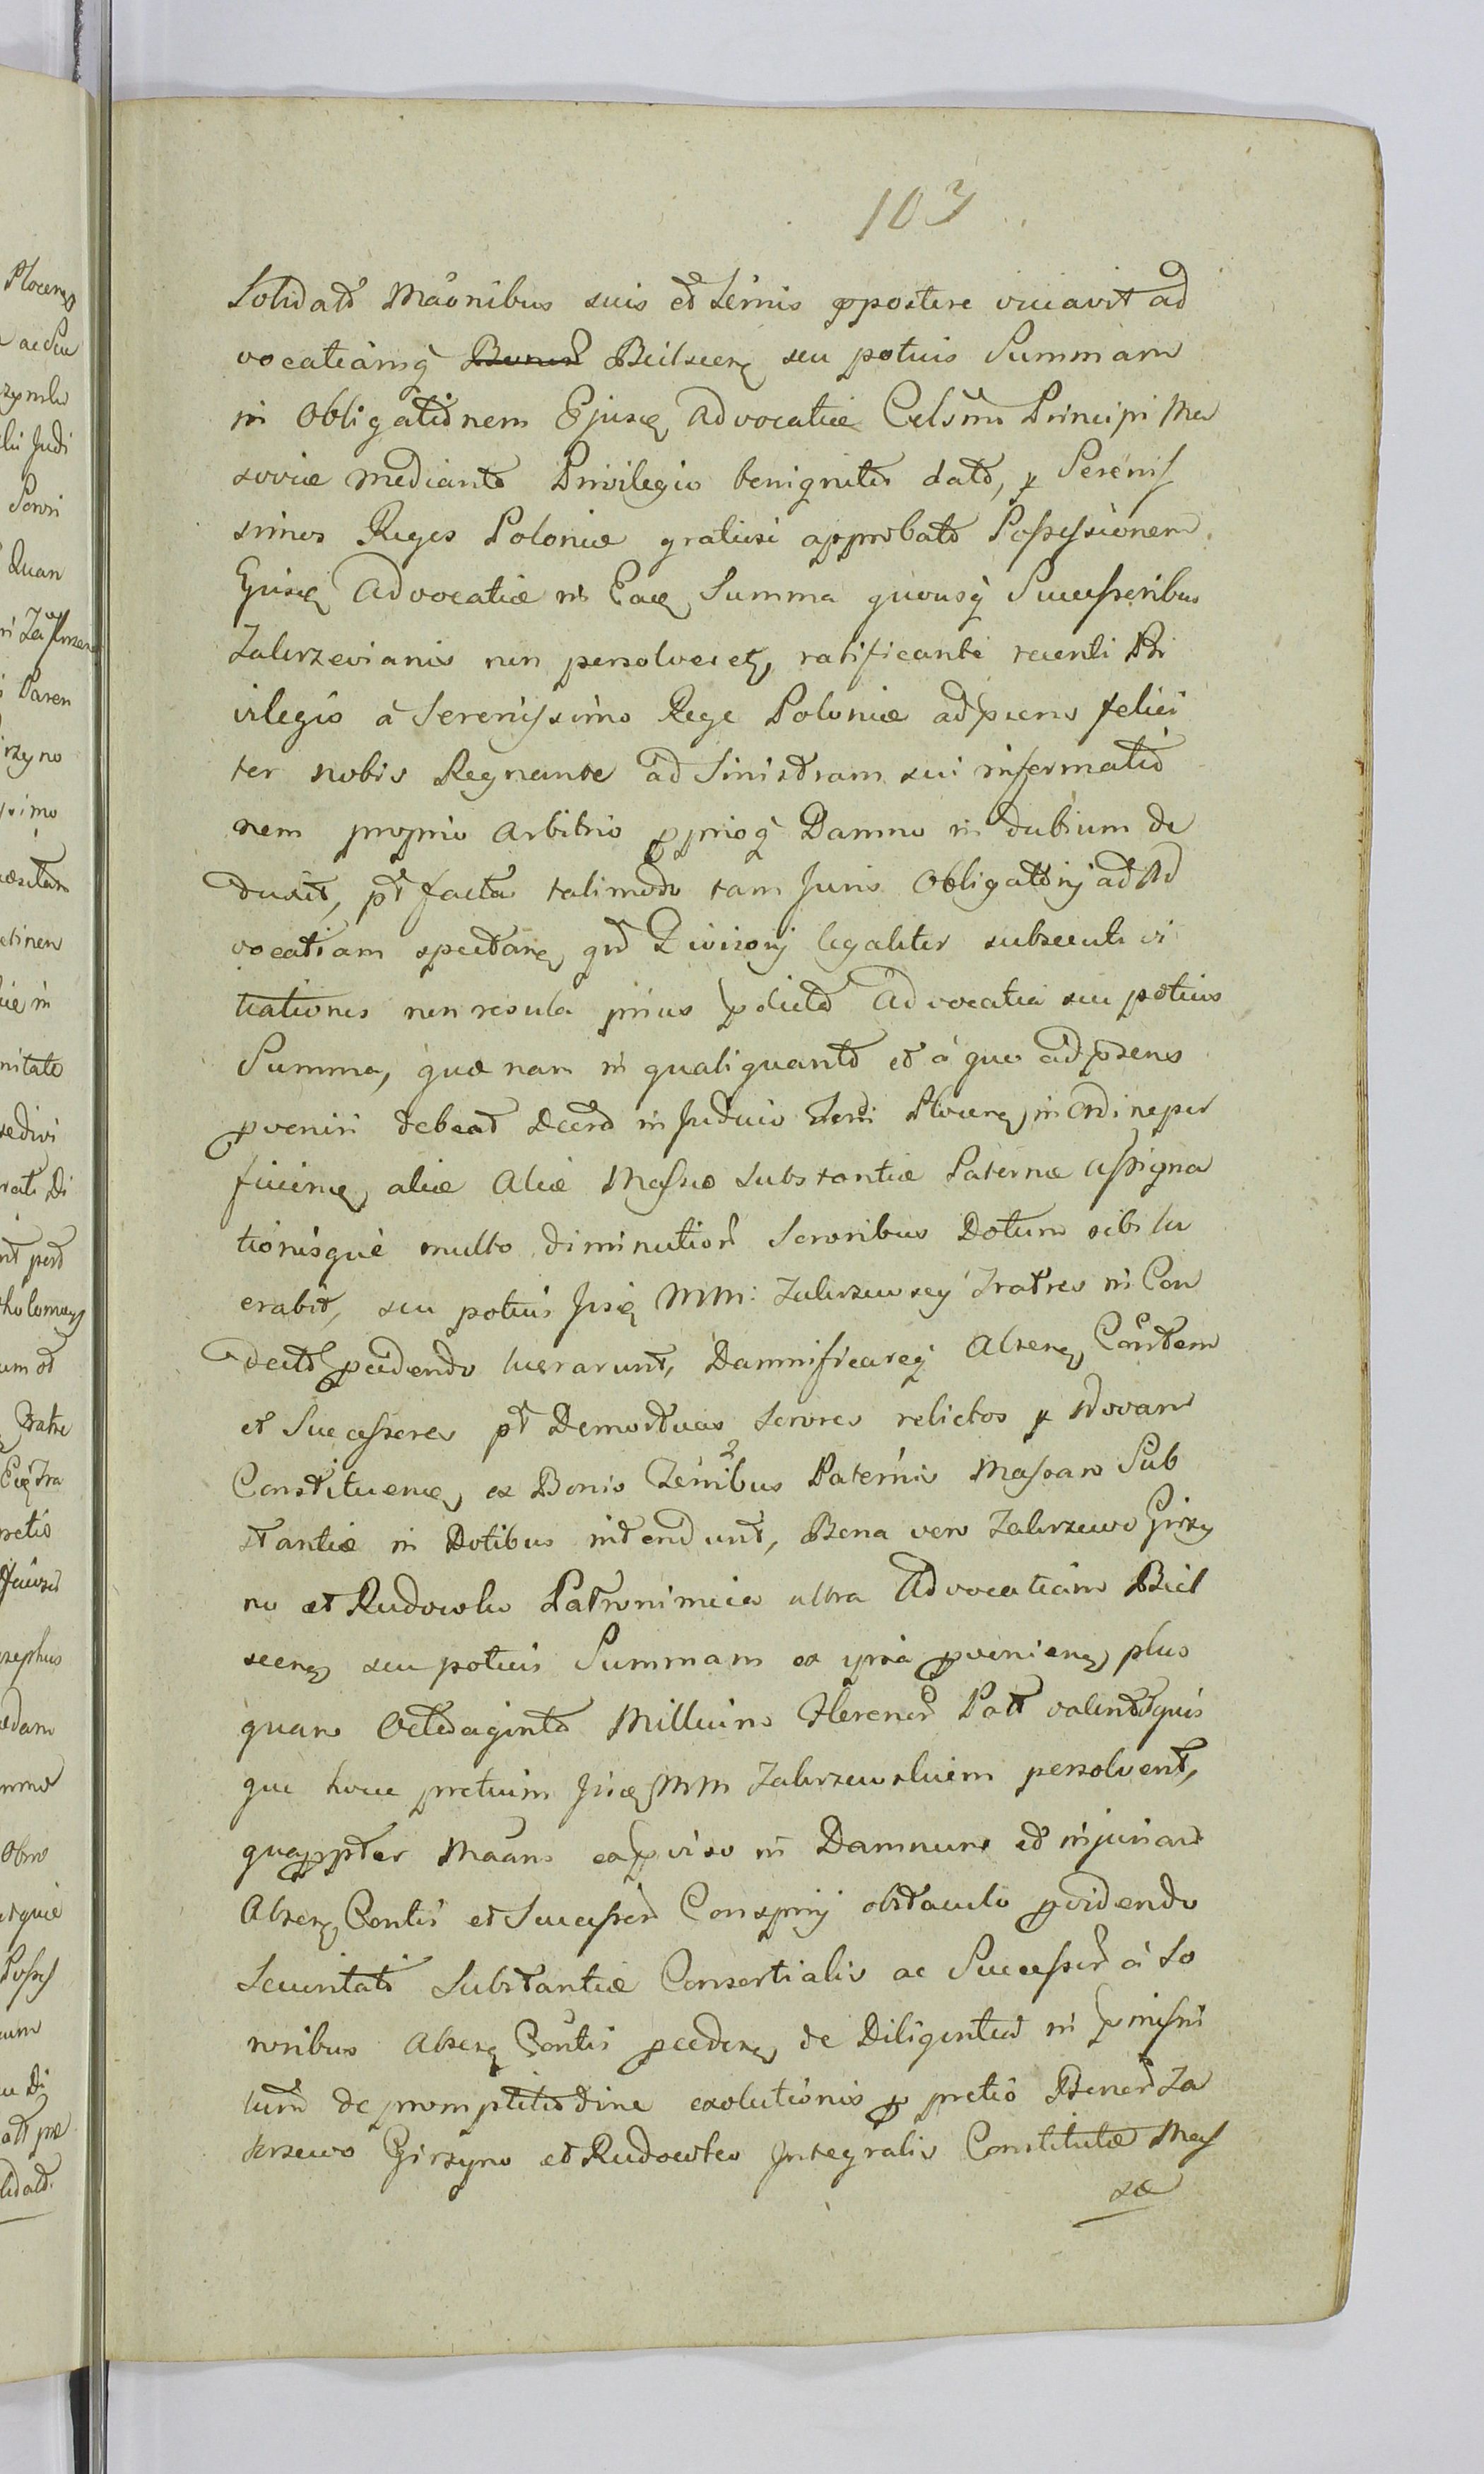 103
Solidatꝭ Maonibus suis et Termis ppostere viciavit ad
vocatiamq̀ Bonorꝭ Bielscenꝭ seu potius Summam
in Obligationem Ejusꝭ advocatiæ Celsmo Principi Ma
soviæ mediante Privilegio benignite datꝭ, p Serenis
simos Reges Poloniæ gratiose approbatꝭ Possessionem
Ejusꝭ Advocatiæ in Eaꝭ Summa quousq̀ Successoribus
Zakrzevianis non persolveretꝭ, ratificante recenti Pri
vilegio à Serenissimo Rege Poloniæ ad psens felici
ter nobis Regnante ad Sinistram sui informatio
nem proprio arbitrio pprioq̀ Damno in dubium de
duxit, pt facta talimodo tam Juris Obligatorij ad Ad
vocatiam spectanꝭ qm Divisorij legaliter subsecuti vi
tiationis non resoluta prius pdicta Advocatia seu potius
Summa, quæ nam in quali quanto et á quo ad psens
pvenire debeat Decrꝭ in Judicio Terri Plocenꝭ in Ordine per
ficienꝭ, aliæ Aliæ Massæ Substantiæ Paternæ assigna
tionisque multo diminutiorꝭ Sororibus Dotum sibi lu
crabit, seu potius Jisꝭ MM: Zakrzewscy Fratres in Con
dictꝭ pcedendo lucrarunt, Damnificareq̀ Absenꝭ Contem
et Successores pt Demortuas Sorores relictos p Novam
Constituenꝭ ex Bonis Terribus Paternis Massam Sub
stantiæ in Dotibus intendunt, Bona vero Zakrzewo Girzy
no et Rudowko Patronimica ultra Advocatiam Biel
scenꝭ seu potius Summam ex ipsa pvenienꝭ plus
quam Octoaginta Millium Florenorꝭ Poll valent quis
que hocce pretium Jisꝭ MM Zakrzewskiem persolvent,
quapptèr Maans ea pviso in Damnum et injuriam
Absenꝭ Contis et Successorꝭ Conspirij obstaculo pvidendo
Securitati Substantiæ Consortialis ac Successorꝭ á So
roribus Absenꝭ Contis pcedenꝭ de Diligentia in pmissis
tum de promptitudine exolutionis p pretio Bonorꝭ Za
krzewo Girzyno et Rudowko Integralis Constitutæ Mas
sæ